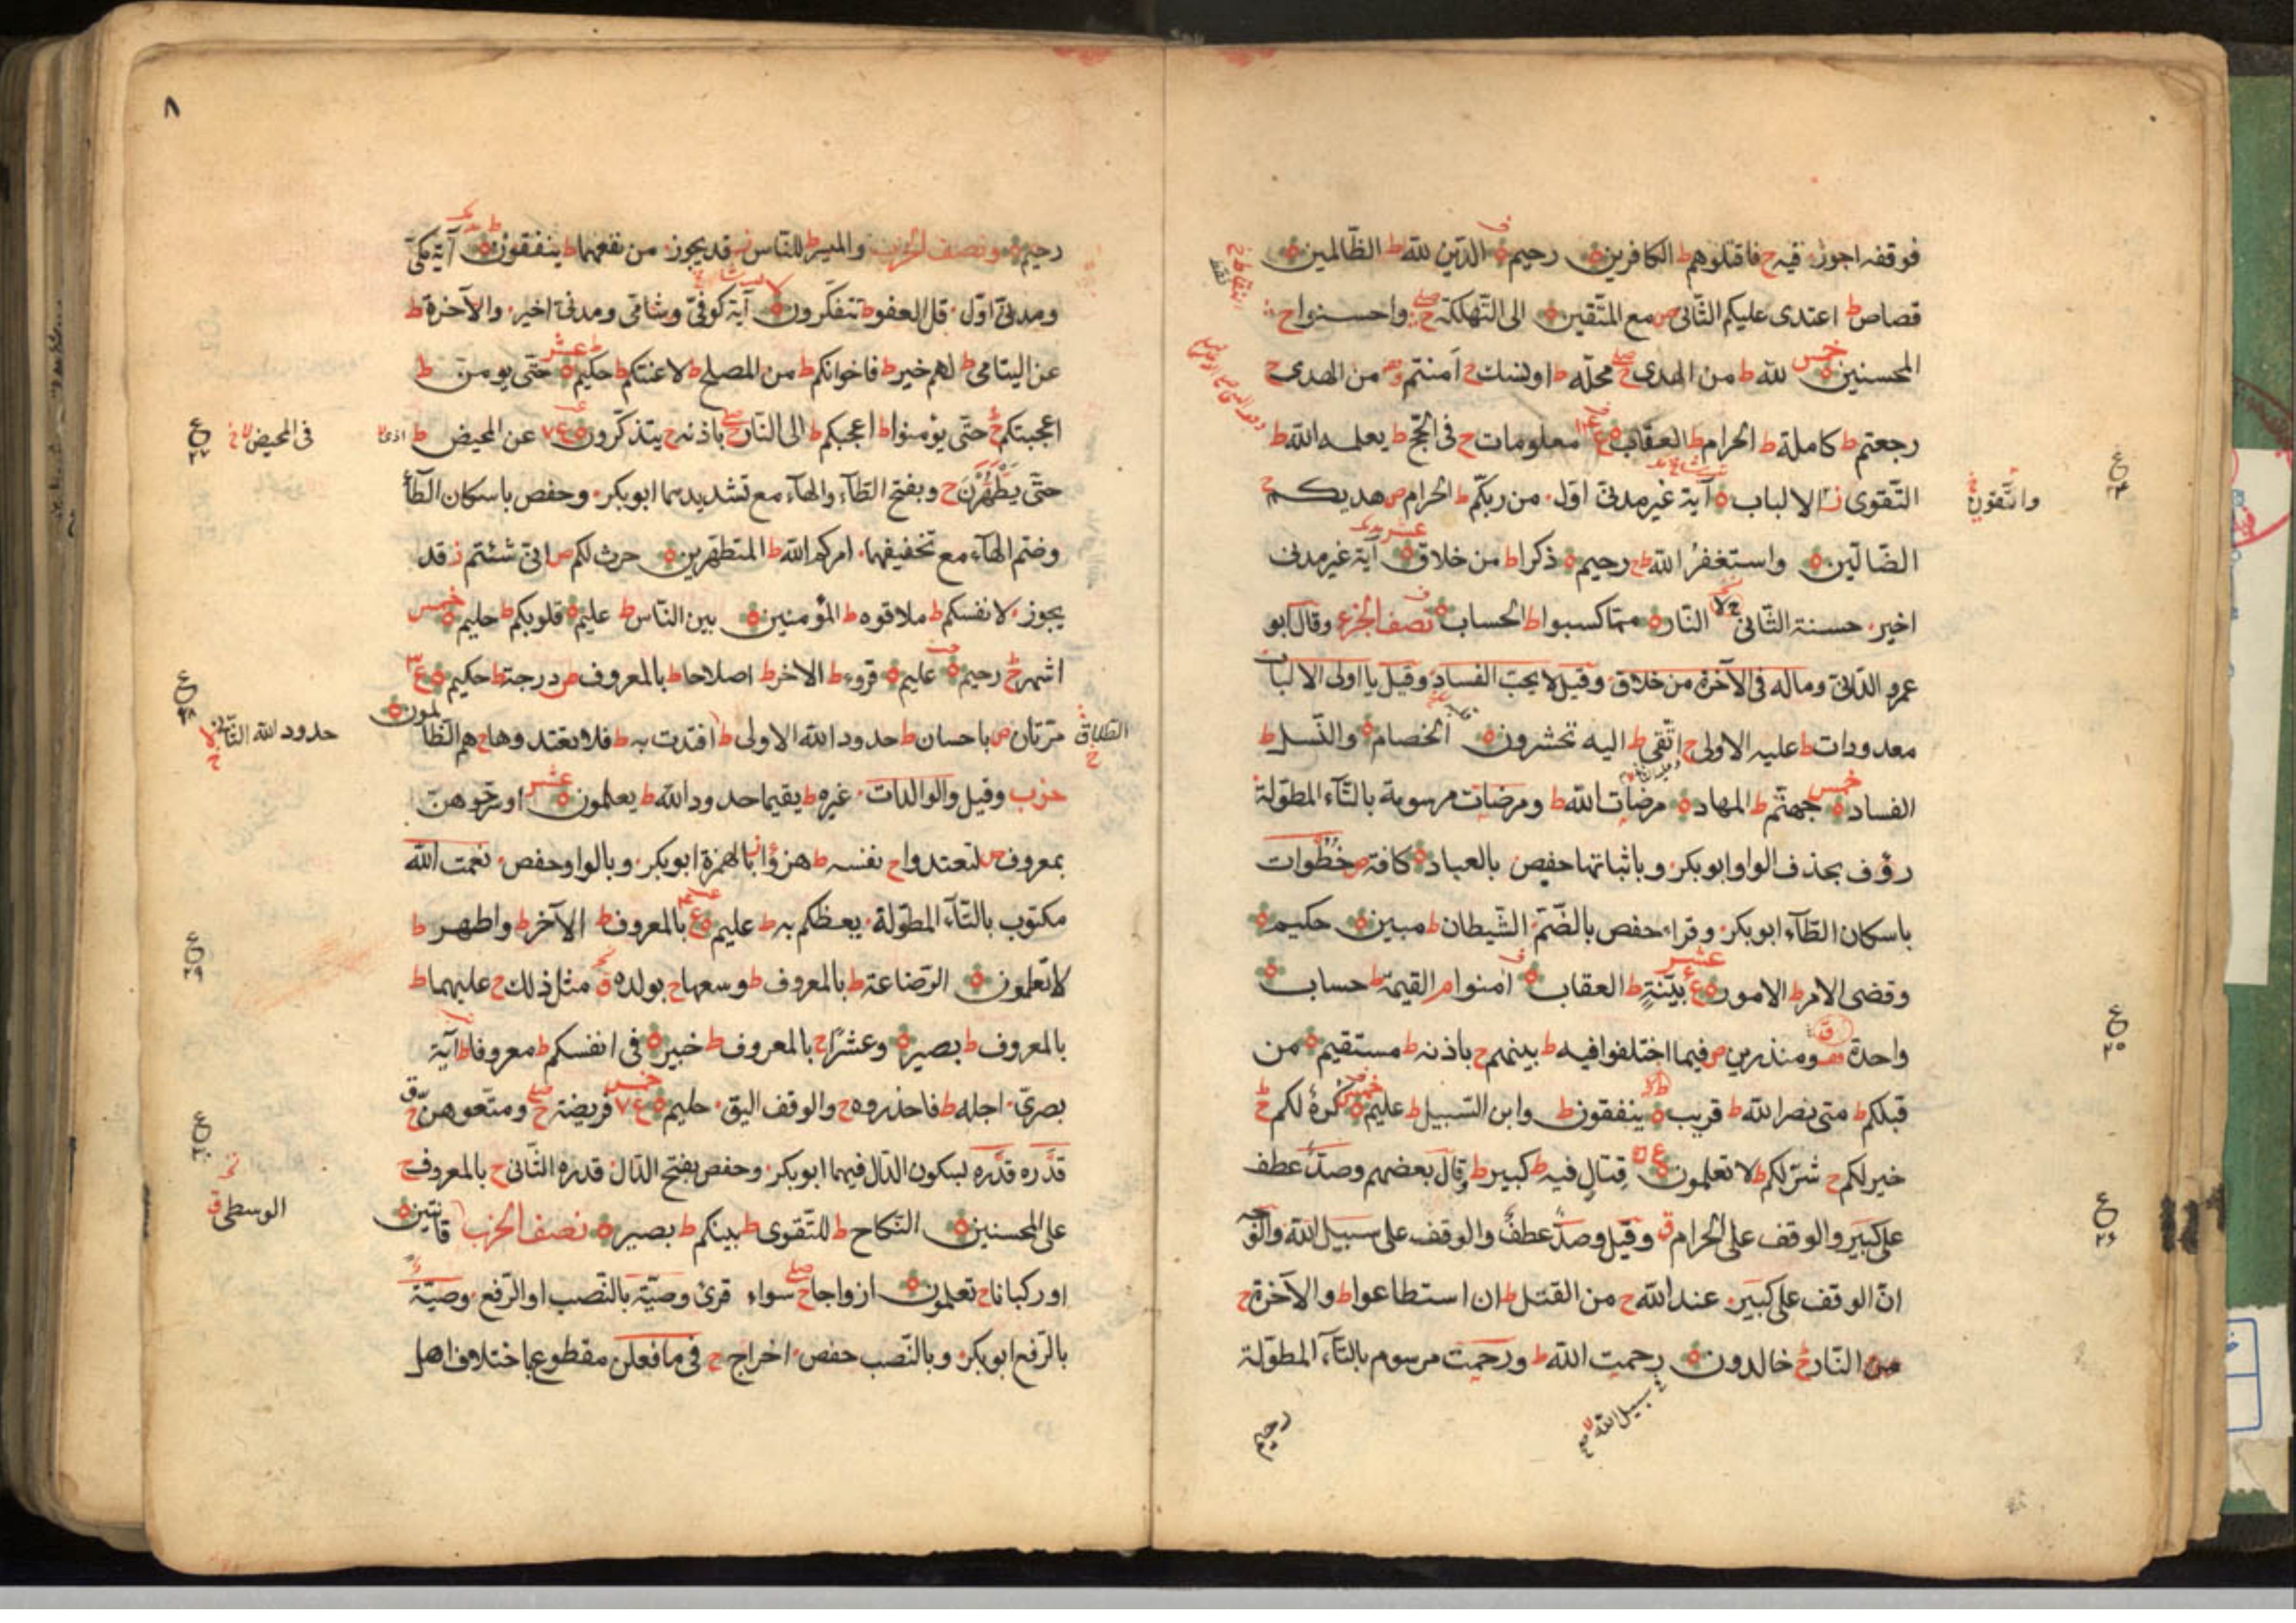 فوقفه اجوز فيه ح فاقتلوهم ط الكافرين ه رحيم ه الدّين للّه ط الظّالمين ه
قصاص ط اعتدى عليكم الثّانى ص مع المتّقين ه الى التّهلكة ج واحسنوا ح
المحسنين ه خمس للّه ط من الهدى ج محلّه ط او نسك ح امنتم من الهدى ج
رجعتم ط كاملة ط الحرام ط العقاب ه ع معلومات ح فى الحجّ ط يعلمه اللّه ط
التّقوى ز الالباب ه آية غير مدنىّ اوّل من ربّكم ط الحرام ص هديكم ح
واتّقون
الضّالّين ه واستغفرُ اللّه ط رحيم ه ذكرا ط من خلاق ه آية غير مدنى
اخير حسنة الثّانى النّار ه ممّا كسبوا ط الحساب ه نصف الجزء وقال ابو
عمرو الدّانىّ وماله فى الآخرة من خلاق وقيل لا يحبّ الفساد وقيل يا اولى الالباب
معدودات ط عليه الاولى ح اتّقى ط اليه تحشرون ه الخصام ه والنّسل ط
الفساد ه خمس جهنّم ط المهاد ه مرضات اللّه ط ومرضات مرسومة بالتّاء المطوّلة
رؤف بحذف الواو ابوبكر وباثباتها حفص بالعباد ه كافة ص خُطُوات
باسكان الطّاء ابوبكر وقراء حفص بالضّمّ الشّيطان ط مبين ه حكيم ه
وقضى الامر ط الامور ه ع عشر بيّنةٍ ط العقاب ه امنوا م القيمة ط حساب ه
واحدة ومنذرين ص فيما اختلفوا فيه ط بينهم ج باذنه ط مستقيم ه من
قبلكم ط متى نصر اللّه ط قريب ه ينفقون ط وابن السّبيل ط عليم ه خمس كرهٌ لكم ج
خير لكم ح شرّ لكم ط لا تعلمون ه ع قتالٍ فيه ط كبير ط وقال بعضهم وصدٌّ عطف
على كبير والوقف على الحرام ق وقيل وصدٌّ عطف والوقف على سبيل اللّه والوجه
انّ الوقف على كبير عند اللّه ح من القتل ط ان استطاعوا ط والآخرة ح
من النّار ج خالدون ه رحمت اللّه ط ورحمت مرسوم بالتّاء المطوّلة
سبيل اللّه
رحيم
٨
رحيم ه ونصف الحزب والميسر ط للنّاس ز قد يجوز من نفعهما ط ينفقون ه آية مكىّ
ومدنىّ اوّل قل العفو ط تتفكّرون ه آية كوفىّ وشامىّ ومدنىّ اخير والآخرة ط
عن اليتامى ط لهم خير ط فاخوانكم ط من المصلح ط لاعنتكم ط حكيم ه عشر حتّى يومنّ ط
اعجبتكم ج حتّى يؤمنوا ط اعجبكم ط الى النّار ج باذنه ح يتذكّرون ه ع عن المحيض ط اذى
فى المحيض
حتّى يَطَّهَّرْنَ ح وبفتح الطّاء والهاء مع تشديدهما ابوبكر وحفص باسكان الطّاء
وضمّ الهاء مع تخفيفهما امركم اللّه ط المتطهّرين ه حرث لكم ص انّى شئتم ز قد
يجوز لانفسكم ط ملاقوه ط المؤمنين ه بين النّاس ط عليم ه قلوبكم ط حليم ه خمس
اشهر ج رحيم ه عليم ه قروء ط الاخر ط اصلاحا ط بالمعروف ص درجة ط حكيم ه ع
الطّلاق مرّتان ص باحسان ط حدود اللّه الاولى ط افتدت به ط فلا تعتدوها ح هم الظّالمون ه
حدود اللّه الثّانى
حزب وقيل والوالدات غيره ط يقيما حدود اللّه ط يعلمون ه عشر او سرّحوهنّ
بمعروف ص لتعتدوا ح نفسه ط هزؤا بالهمزة ابوبكر وبالواو حفص نعمت اللّه
مكتوب بالتّاء المطوّلة يعظكم به ط عليم ه ع بالمعروف ط الآخر ط واطهر ط
لا تعلمون ه الرّضاعة ط بالمعروف ط وسعها ح بولده ق مثل ذلك ح عليهما ط
بالمعروف ط بصير ه وعشرًا ح بالمعروف ط خبير ه فى انفسكم ط معروفا ط آية
بصرىّ اجله ط فاحذروه ح والوقف اليق حليم ه خمس ع فريضة ج ومتّعوهنّ ج
قدَره قدْره بسكون الدّال فيهما ابوبكر وحفص بفتح الدّال قدره الثّانى ح بالمعروف ج
على المحسنين ه النّكاح ط للتّقوى ط بينكم ط بصير ه نصف الحزب قانتين ه
الوسطى ق
او ركبانا ح تعلمون ه ازواجا ج سواء قرئ وصيّة بالنّصب او الرّفع وصيّة
بالرّفع ابوبكر وبالنّصب حفص اخراج ج فى ما فعلن مقطوع باختلاف اهل